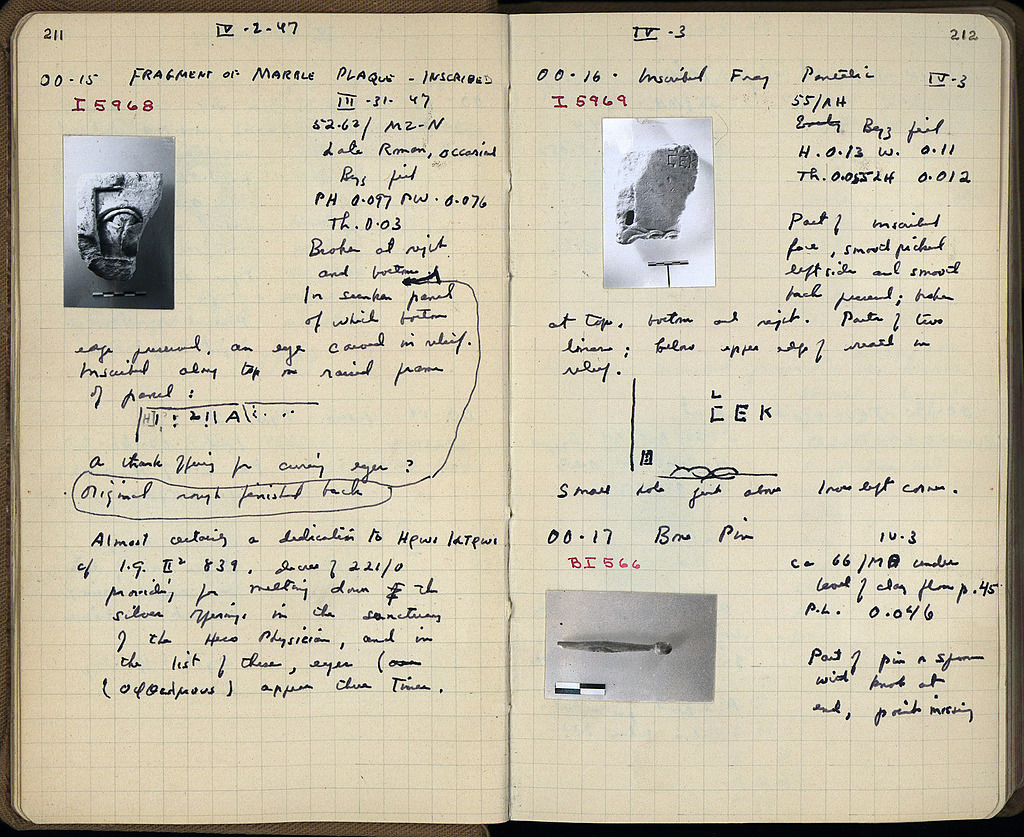 211
IV - 2 - 47
OO · 15 FRAGMENT OF MARBLE PLAQUE - INSCRIBED
I 5968
III - 31 - 47
52.62/ MZ-N
Late Roman, occasional
Byz fill
PH 0.097 PW. 0.076
Th. 0.03
Broken at right
and bottom
In sunken panel
of which bottom
edge preserved, an eye carved in relief.
Inscribed along top on raised frame
of panel :
A thank offering for curing eyes ?
Original rough finished back
Almost certainly a dedication to Ηρως Ιατρως
cf I.G. II² 839. decree of 221/0
providing for melting down of the
silver offerings in the sanctuary
of the Hero Physician, and in
the list of these, eyes
appear three times.
212
IV - 3
OO · 16 · Inscribed Frag Pentelic
IV - 3
I 5969
55/ΛΗ
Byz fill
H. 0.13 W. 0.11
Th. 0.055 LH 0.012
Part of inscribed
face, smooth picked
left side and smooth
back preserved; broken
at top, bottom and right. Parts of two
lines; below upper edge of wreath in
relief.
Ε Κ
Small hole just above lower left corner.
OO · 17 Bone Pin
IV · 3
BI 566
ca 66/ under
level of clay floor p. 45
P.L. 0.046
Part of pin or spoon
with knob at
end, point missing